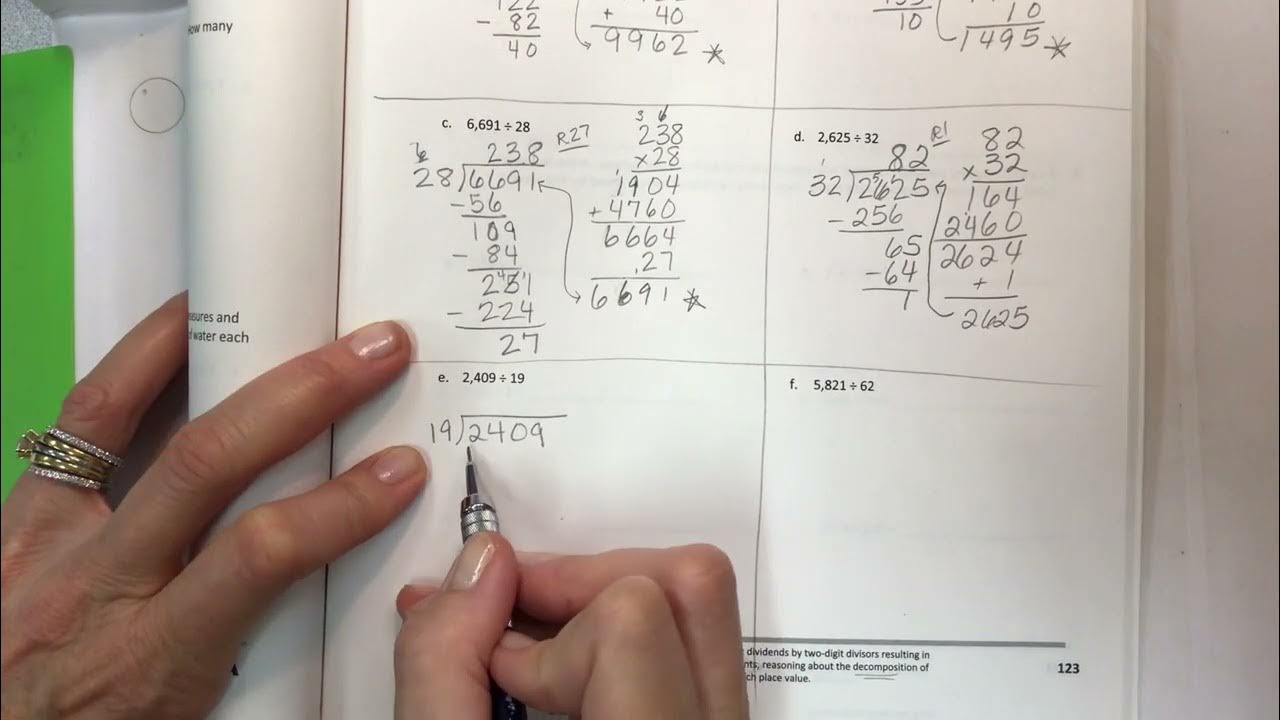 ow many
122
- 82
40
+ 40
9962
10
10
1495
asures and
f water each
c. 6,691 ÷ 28
238 R27
28)6691
-56
109
- 84
251
- 224
27
3 6
238
x28
1904
+4760
6664
27
6691
d. 2,625 ÷ 32
82 R1
32)2625
- 256
65
-64
1
82
x32
164
2460
2624
+ 1
2625
e. 2,409 ÷ 19
19)2409
f. 5,821 ÷ 62
dividends by two-digit divisors resulting in
nts, reasoning about the decomposition of
ch place value.
123